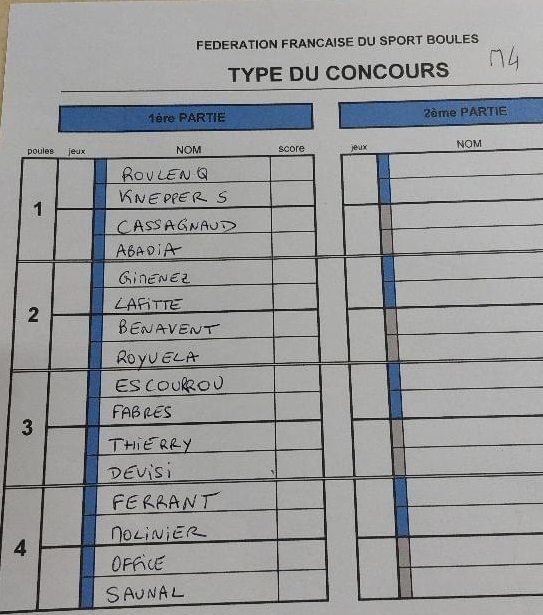 FEDERATION FRANCAISE DU SPORT BOULES
TYPE DU CONCOURS M4
1ère PARTIE 2ème PARTIE
poules jeux NOM score jeux NOM
1
ROULEN Q
KNEPPER S
CASSAGNAUD
ABADIA
2
GIMENEZ
LAFITTE
BENAVENT
ROYUELA
3
ESCOURROU
FABRES
THIERRY
DEVISI
4
FERRANT
MOLINIER
OFFICE
SAUNAL